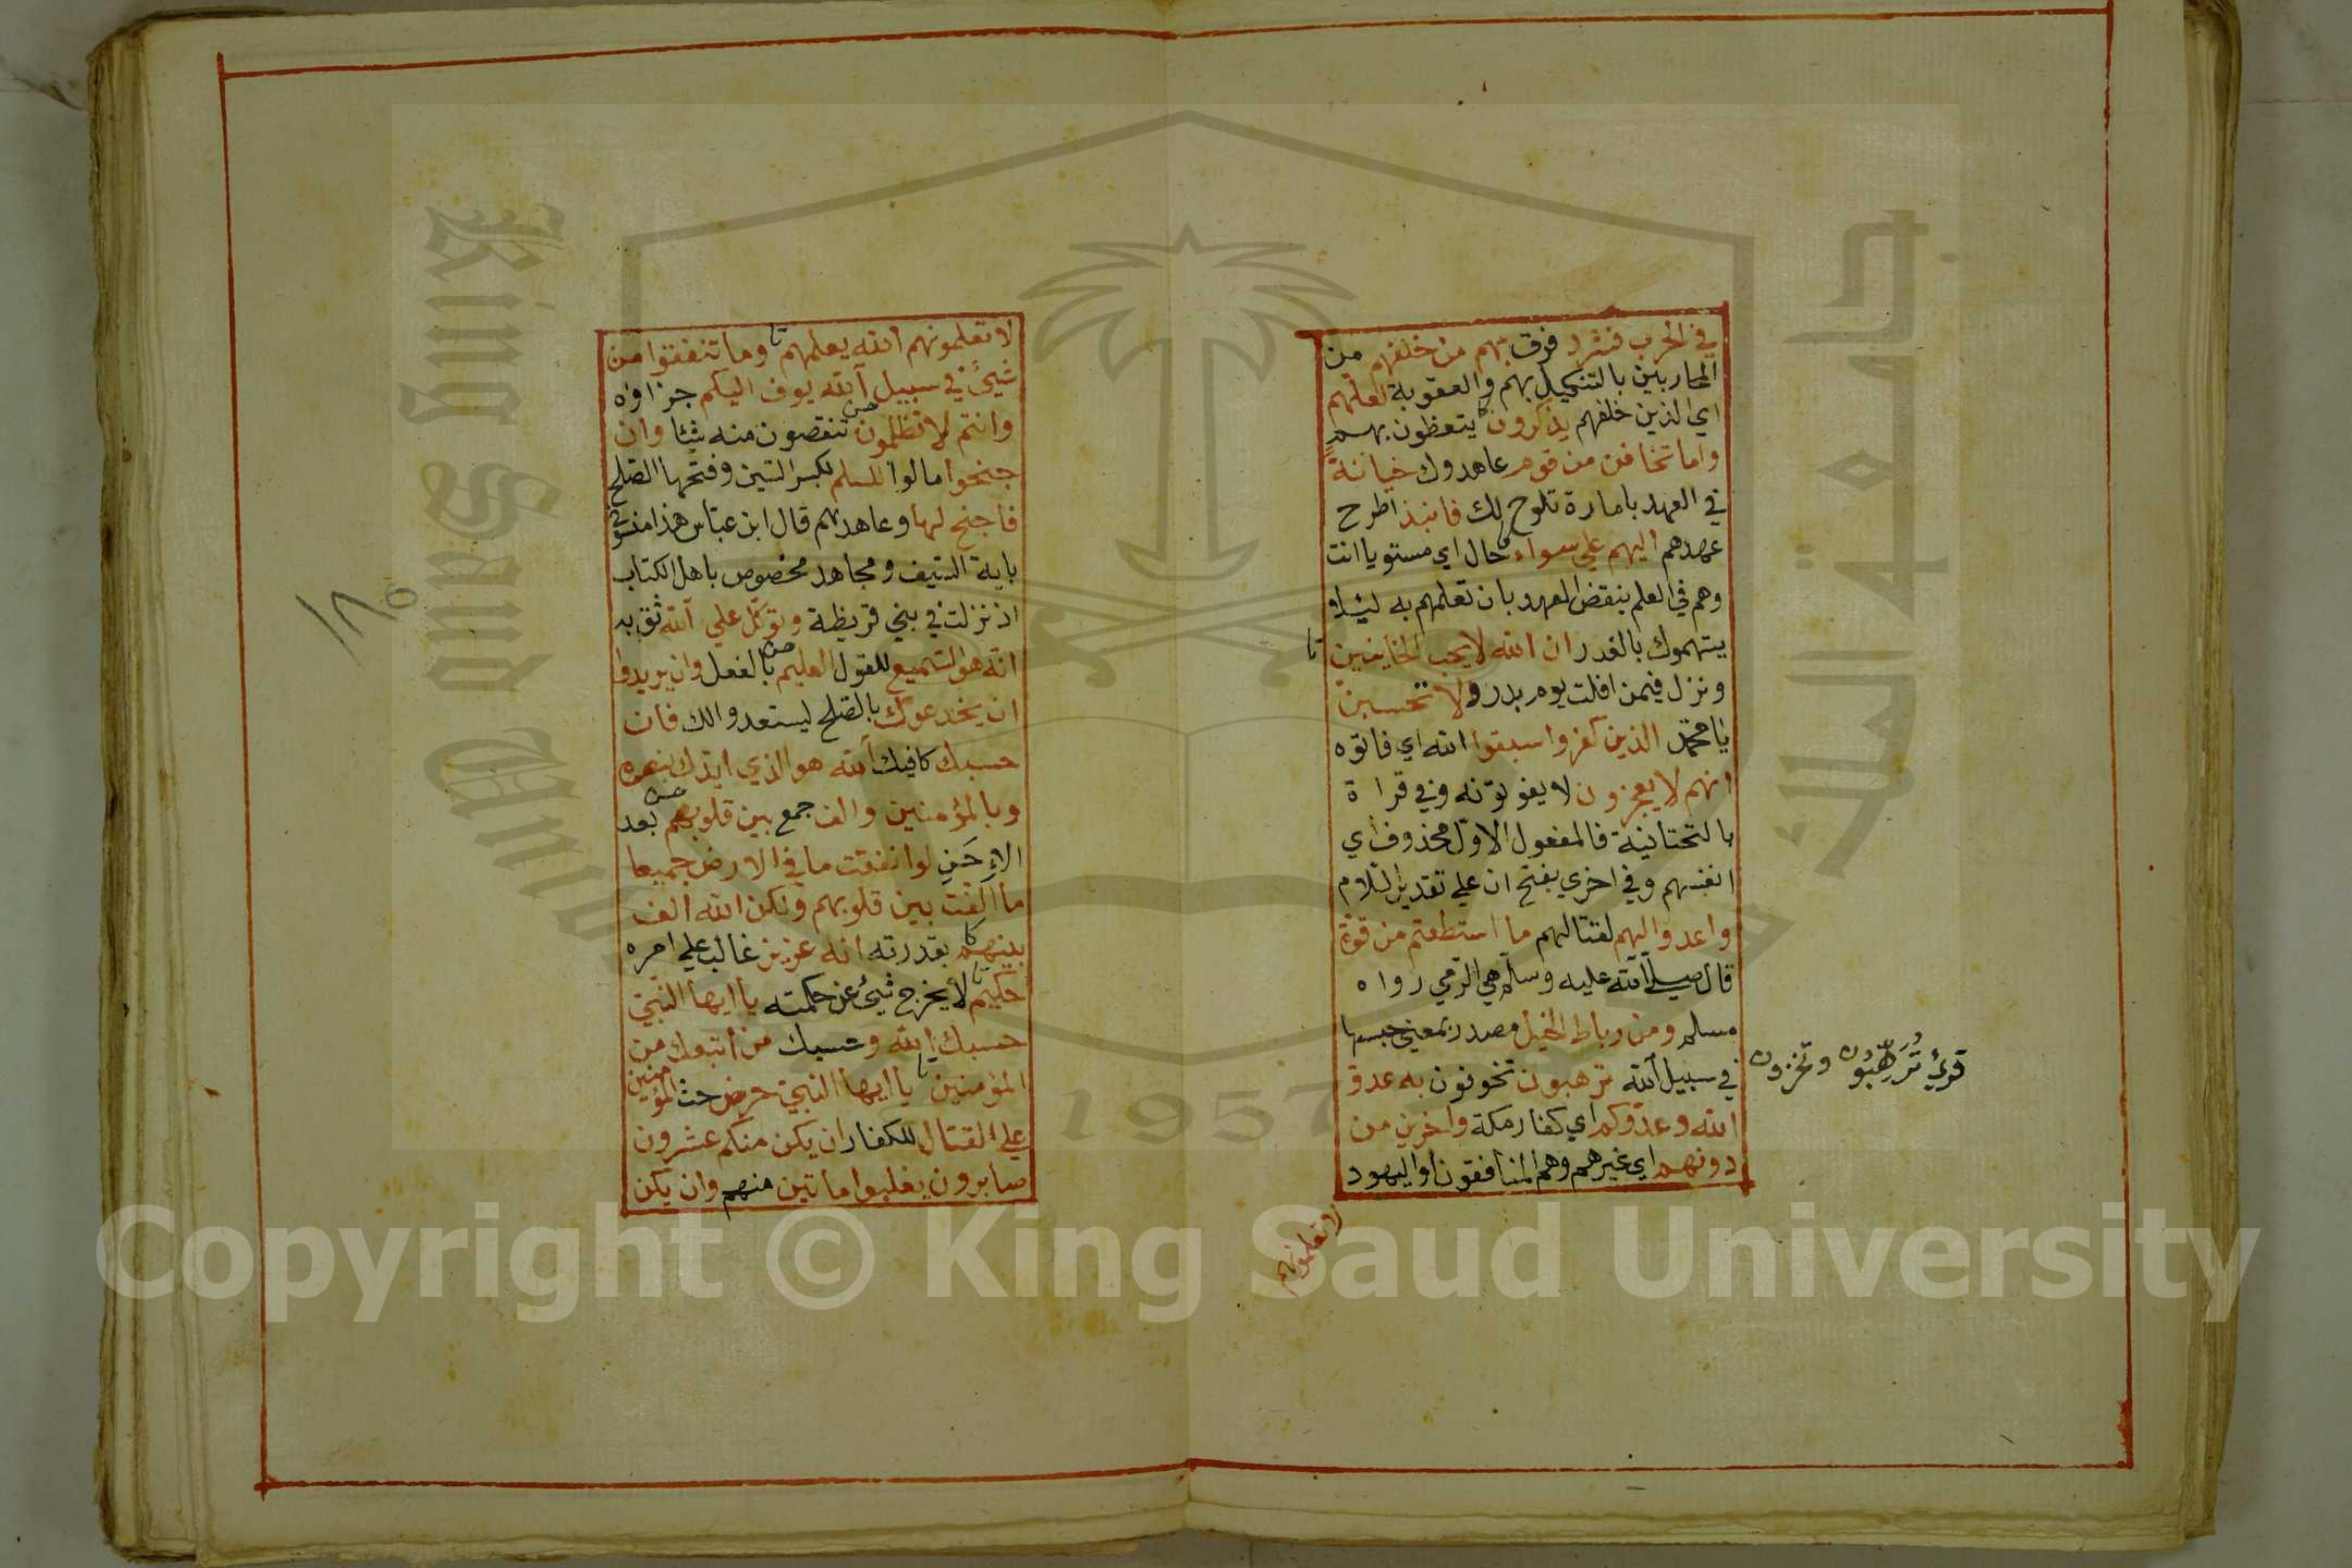 في الحرب فشرد فرق بهم من خلفهم من
المحاربين بالتنكيل بهم والعقوبة لعلهم
اي الذين خلفهم يذكرون يتعظون بهم
واما تخافن من قوم عاهدوك خيانة
في العهد بامارة تلوح لك فانبذ اطرح
عهدهم اليهم علي سواء حال اي مستويا انت
وهم في العلم بنقض العهد بان تعلمهم به ليلا
يتهموك بالغدر ان الله لا يحب الخاينين
ونزل فيمن افلت يوم بدر ولا تحسبن
يا محمد الذين كفروا سبقوا الله اي فاتوه
انهم لا يعجزون لا يفوتونه وفي قراة
بالتحتانية فالمفعول الاول محذوف اي
انفسهم وفي اخري بفتح ان علي تقدير اللام
واعدوا لهم لقتالهم ما استطعتم من قوة
قال صلي الله عليه وسلم هي الرمي رواه
مسلم ومن رباط الخيل مصدر بمعني حبسها
في سبيل الله ترهبون تخوفون به عدو
الله وعدوكم اي كفار مكة واخرين من
دونهم اي غيرهم وهم المنافقون او اليهود
لا تعلمونهم
قرئ تُرَهِّبُون وتخزون
لا تعلمونهم الله يعلمهم وما تنفقوا من
شيئ في سبيل الله يوف اليكم جزاوه
وانتم لا تظلمون تنقصون منه شئا وان
جنحوا مالوا للسلم بكسر السين وفتحها الصلح
فاجنح لها وعاهدهم قال ابن عباس هذا منسوخ
باية السيف ومجاهد مخصوص باهل الكتاب
اذ نزلت في بني قريظة وتوكل علي الله ثق به
انه هو السميع للقول العليم بالفعل وان يريدوا
ان يخدعوك بالصلح ليستعدوا لك فان
حسبك كافيك الله هو الذي ايدك بنصره
وبالمؤمنين والف جمع بين قلوبهم بعد
الإحَنِ لو انفقت ما في الارض جميعا
ما الفت بين قلوبهم ولكن الله الف
بينهم بقدرته انه عزيز غالب علي امره
حكيم لا يخرج شيئ عن حكمته يا ايها النبي
حسبك الله وحسبك من اتبعك من
المؤمنين يا ايها النبي حرض حث المؤمنين
علي القتال للكفار ان يكن منكم عشرون
صابرون يغلبوا ماتين منهم وان يكن
King Saud University
جامعة الملك
1957
Copyright © King Saud University